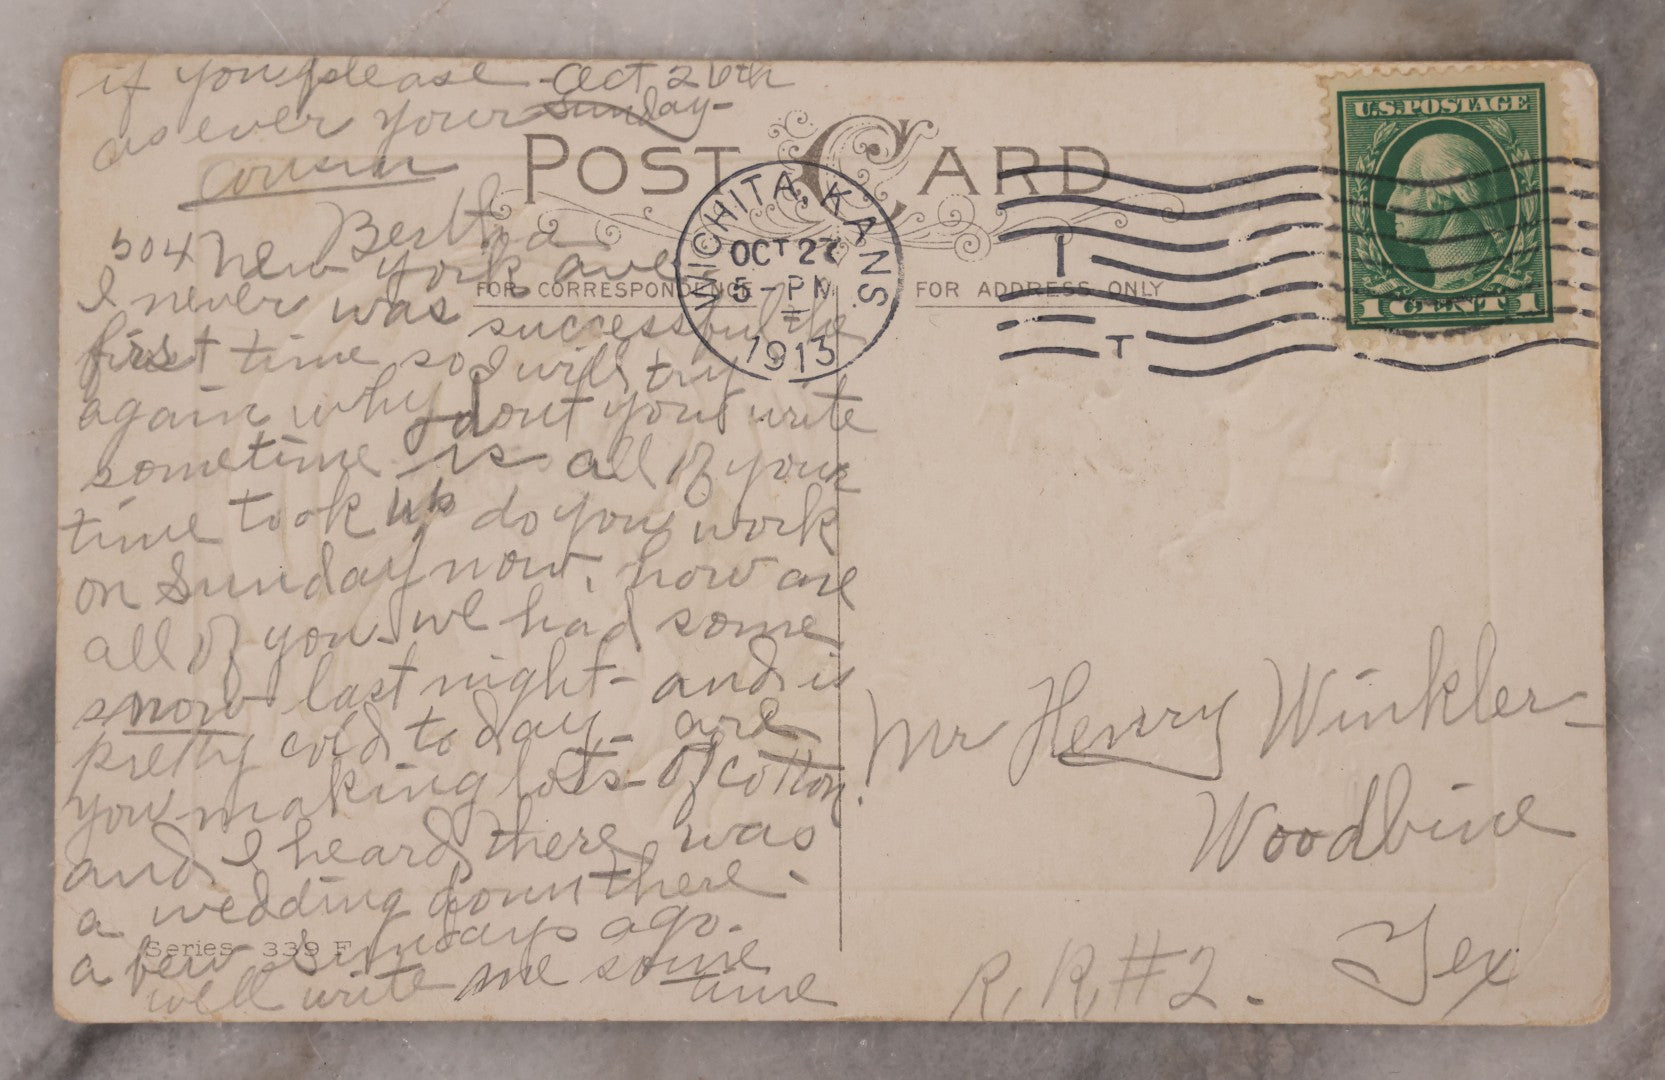 if you please Oct 26th
as ever your Sunday-
cousin
Bertha
504 New York ave
I never was successful the
first time so I will try
again why dont your write
sometime is all of your
time took up do you work
on Sunday now. how are
all of you. we had some
snow last night- and is
pretty cold today- are
you making lots- of cotton.
and I heard there was
a wedding down there-
a few Sundays ago.
well write me some
time
Series 339 F
POST CARD
FOR CORRESPONDENCE
FOR ADDRESS ONLY
WICHITA, KANS.
OCT 27
5-PM
1913
1
T
U.S. POSTAGE
1 CENT 1
Mr Henry Winkler-
Woodbine
Tex
R, R, #2.